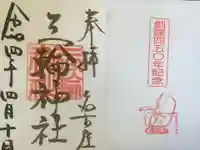 奉拝
名古屋
三輪神社
令和四年四月十日
創建四五〇年記念